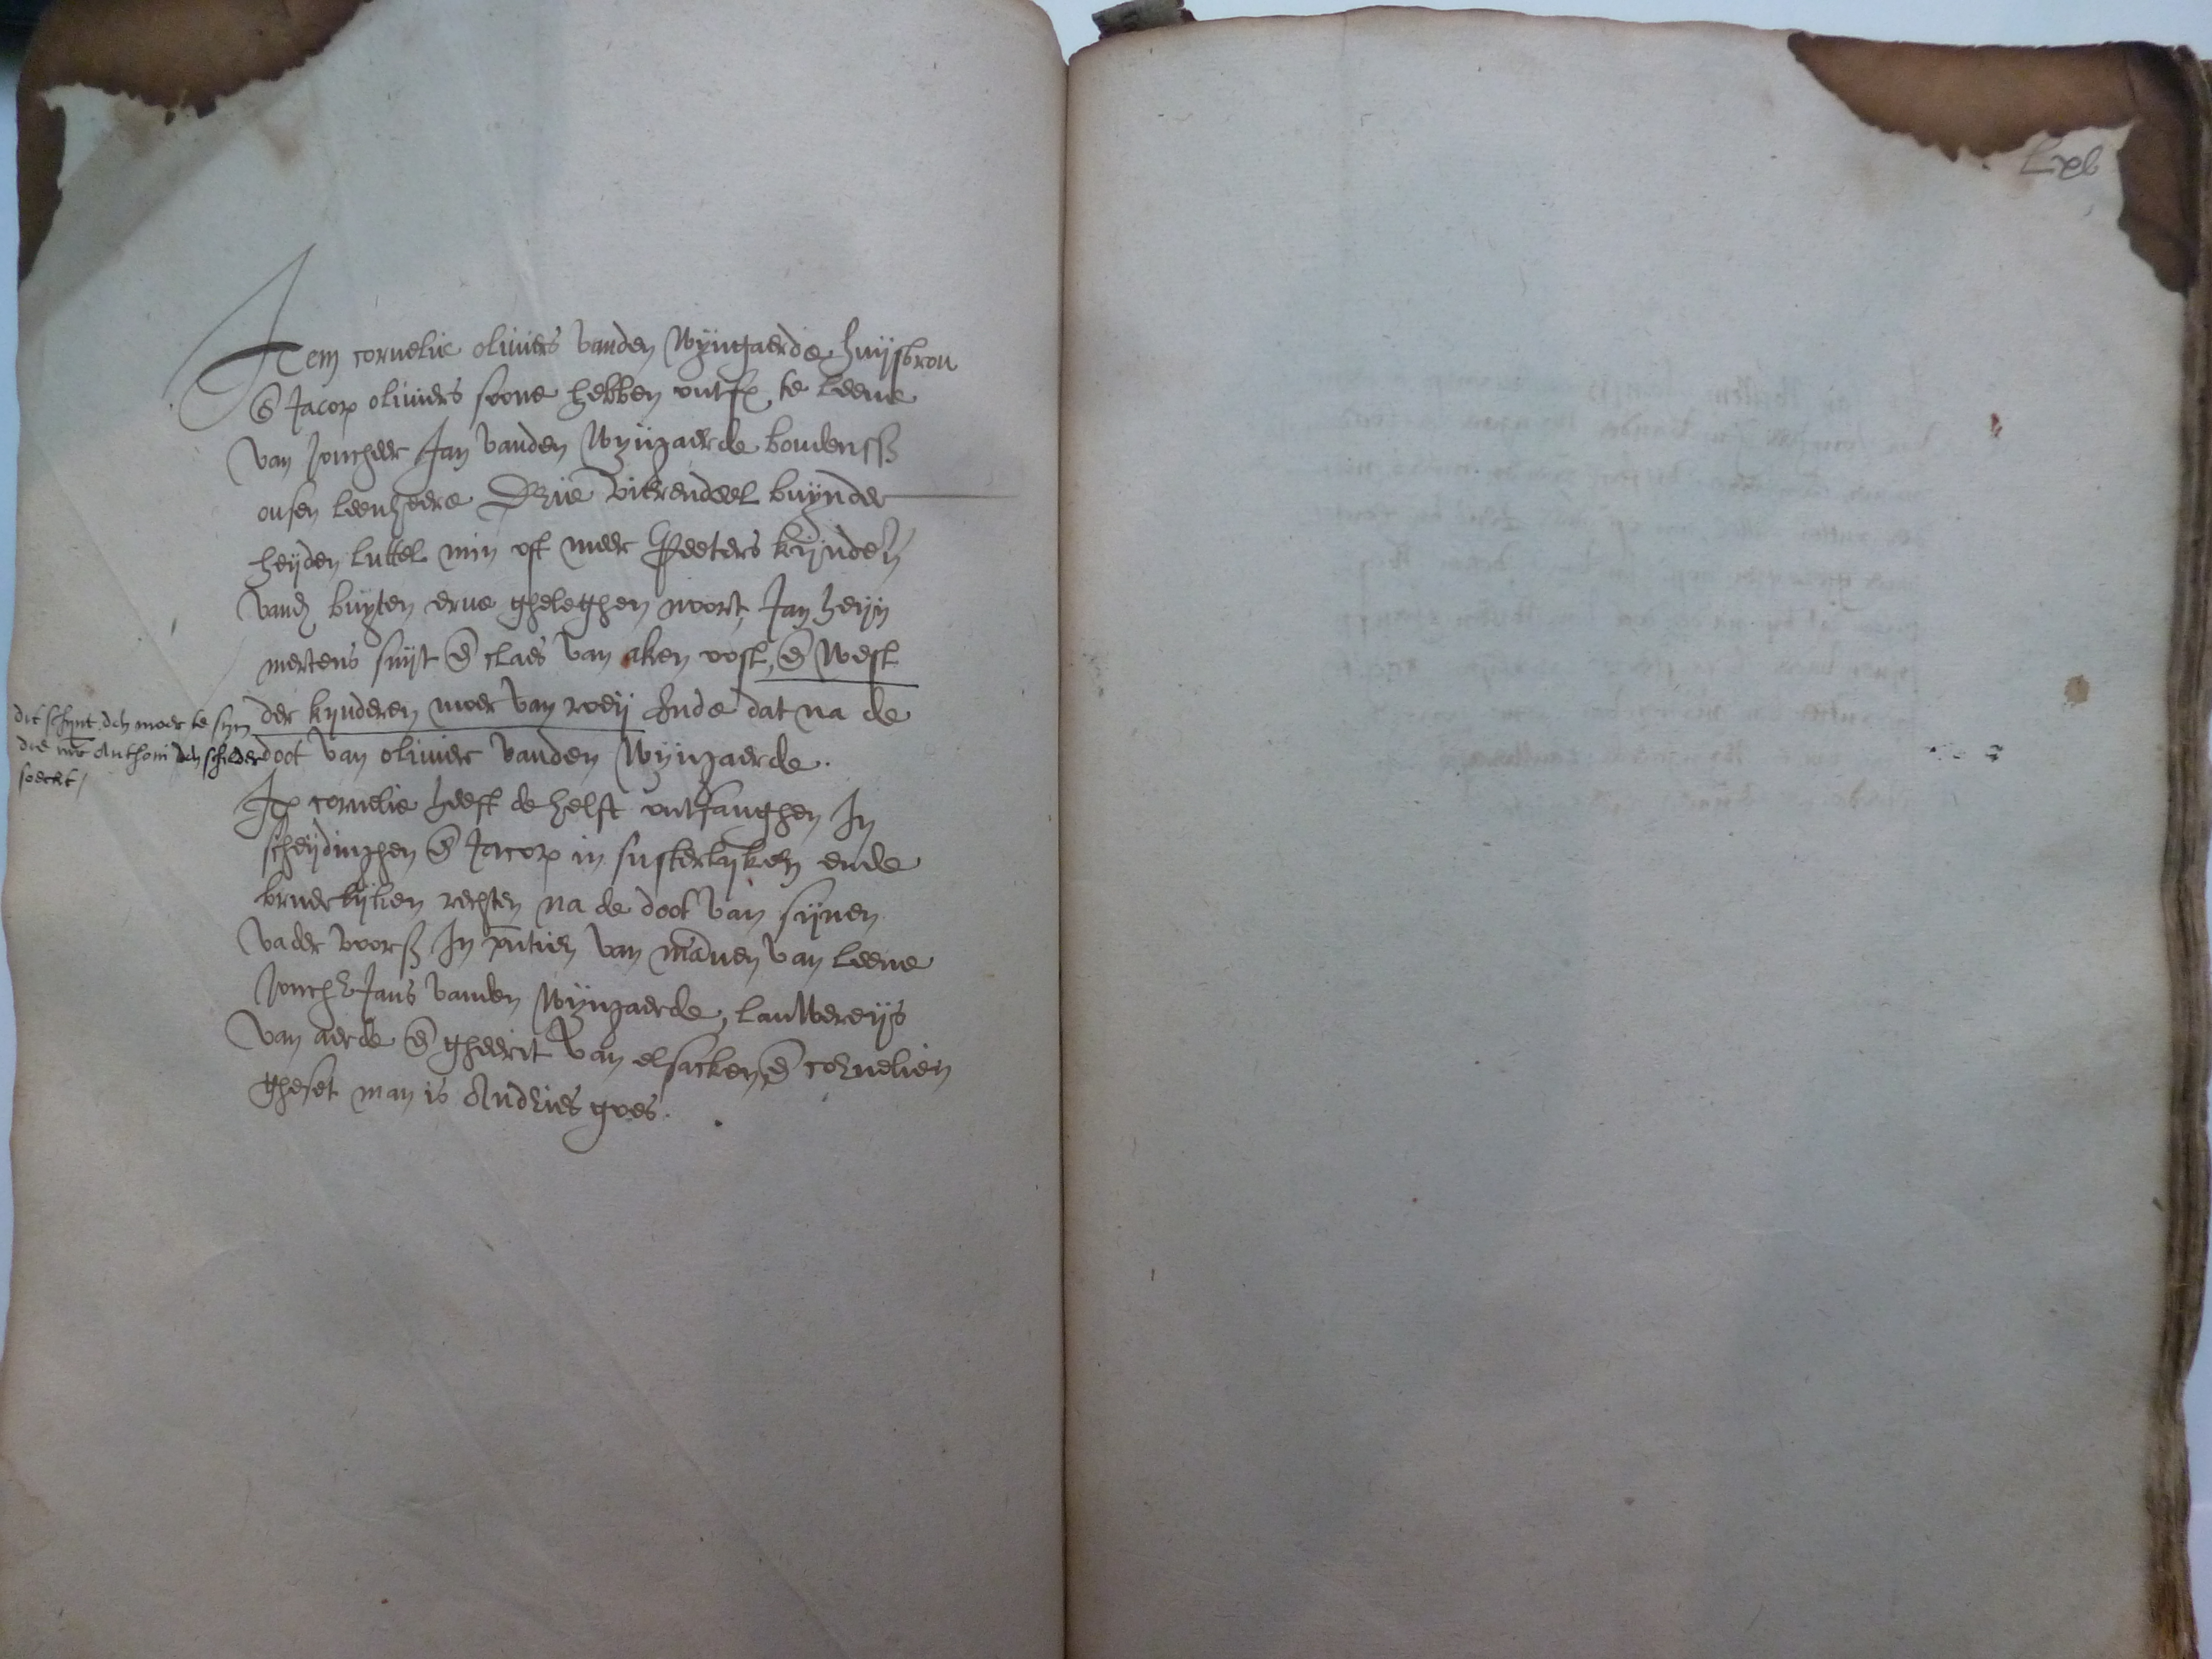 Lxv
Item cornelie oliviers vanden Wyngaerde huijsvrou
en Jacop oliviers soone hebben ontf te leene
van Joncheer Jan vanden Wijngaerde boudenss
onsen leenheere Drije vierendeel buynder
heijden luttel min oft meer Peeters kijnderen
vand buyten erve gheleghen noort, Jan heijn
mertens suijt en claes van aken oost, en West
der kijnderen moer van roeij Ende dat na de
doot van olivier vanden Wijngaerde.
dit schijnt den moer te sijn
die mr Anthoni den schilder
soeckt /
Itp cornelie heeft de helft ontfanghen In
scheijdinghen en Jacop in susterlijken ende
bruderlijken rechten na de doot van sijnen
vader voors In pntien van mannen van leene
Jonch Jans vanden Wijngaerde, lauWereijs
van aerde en gheerit van elsacken, en cornelien
gheset man is Andries goes.